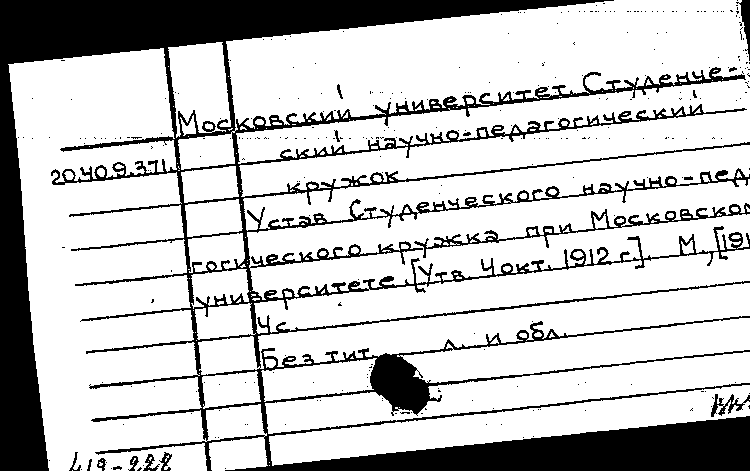 Московский университет. Студенче-
ский научно-педагогический
20.40.9.371.
кружок.
Устав Студенческого научно-педа
гогического кружка при Московском
университете. [Утв. 4 окт. 1912 г.]. М., [191
4 с.
Без тит. л. и обл.
419-222